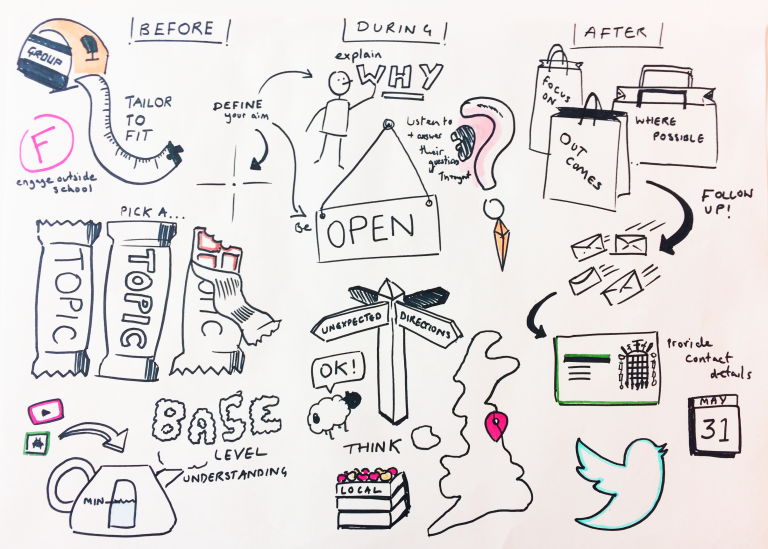 BEFORE
GROUP
TAILOR
TO
FIT
F
engage outside
school
PICK A...
TOPIC
TOPIC
TOPIC
BASE
LEVEL
UNDERSTANDING
MIN
DURING
explain
WHY
DEFINE
your aim
Listen to
+ answer
their
questions
Throughout
Be
OPEN
UNEXPECTED
DIRECTIONS
OK!
THINK
LOCAL
AFTER
FOCUS
ON
OUT
COMES
WHERE
POSSIBLE
FOLLOW
UP!
Provide
contact
details
MAY
31